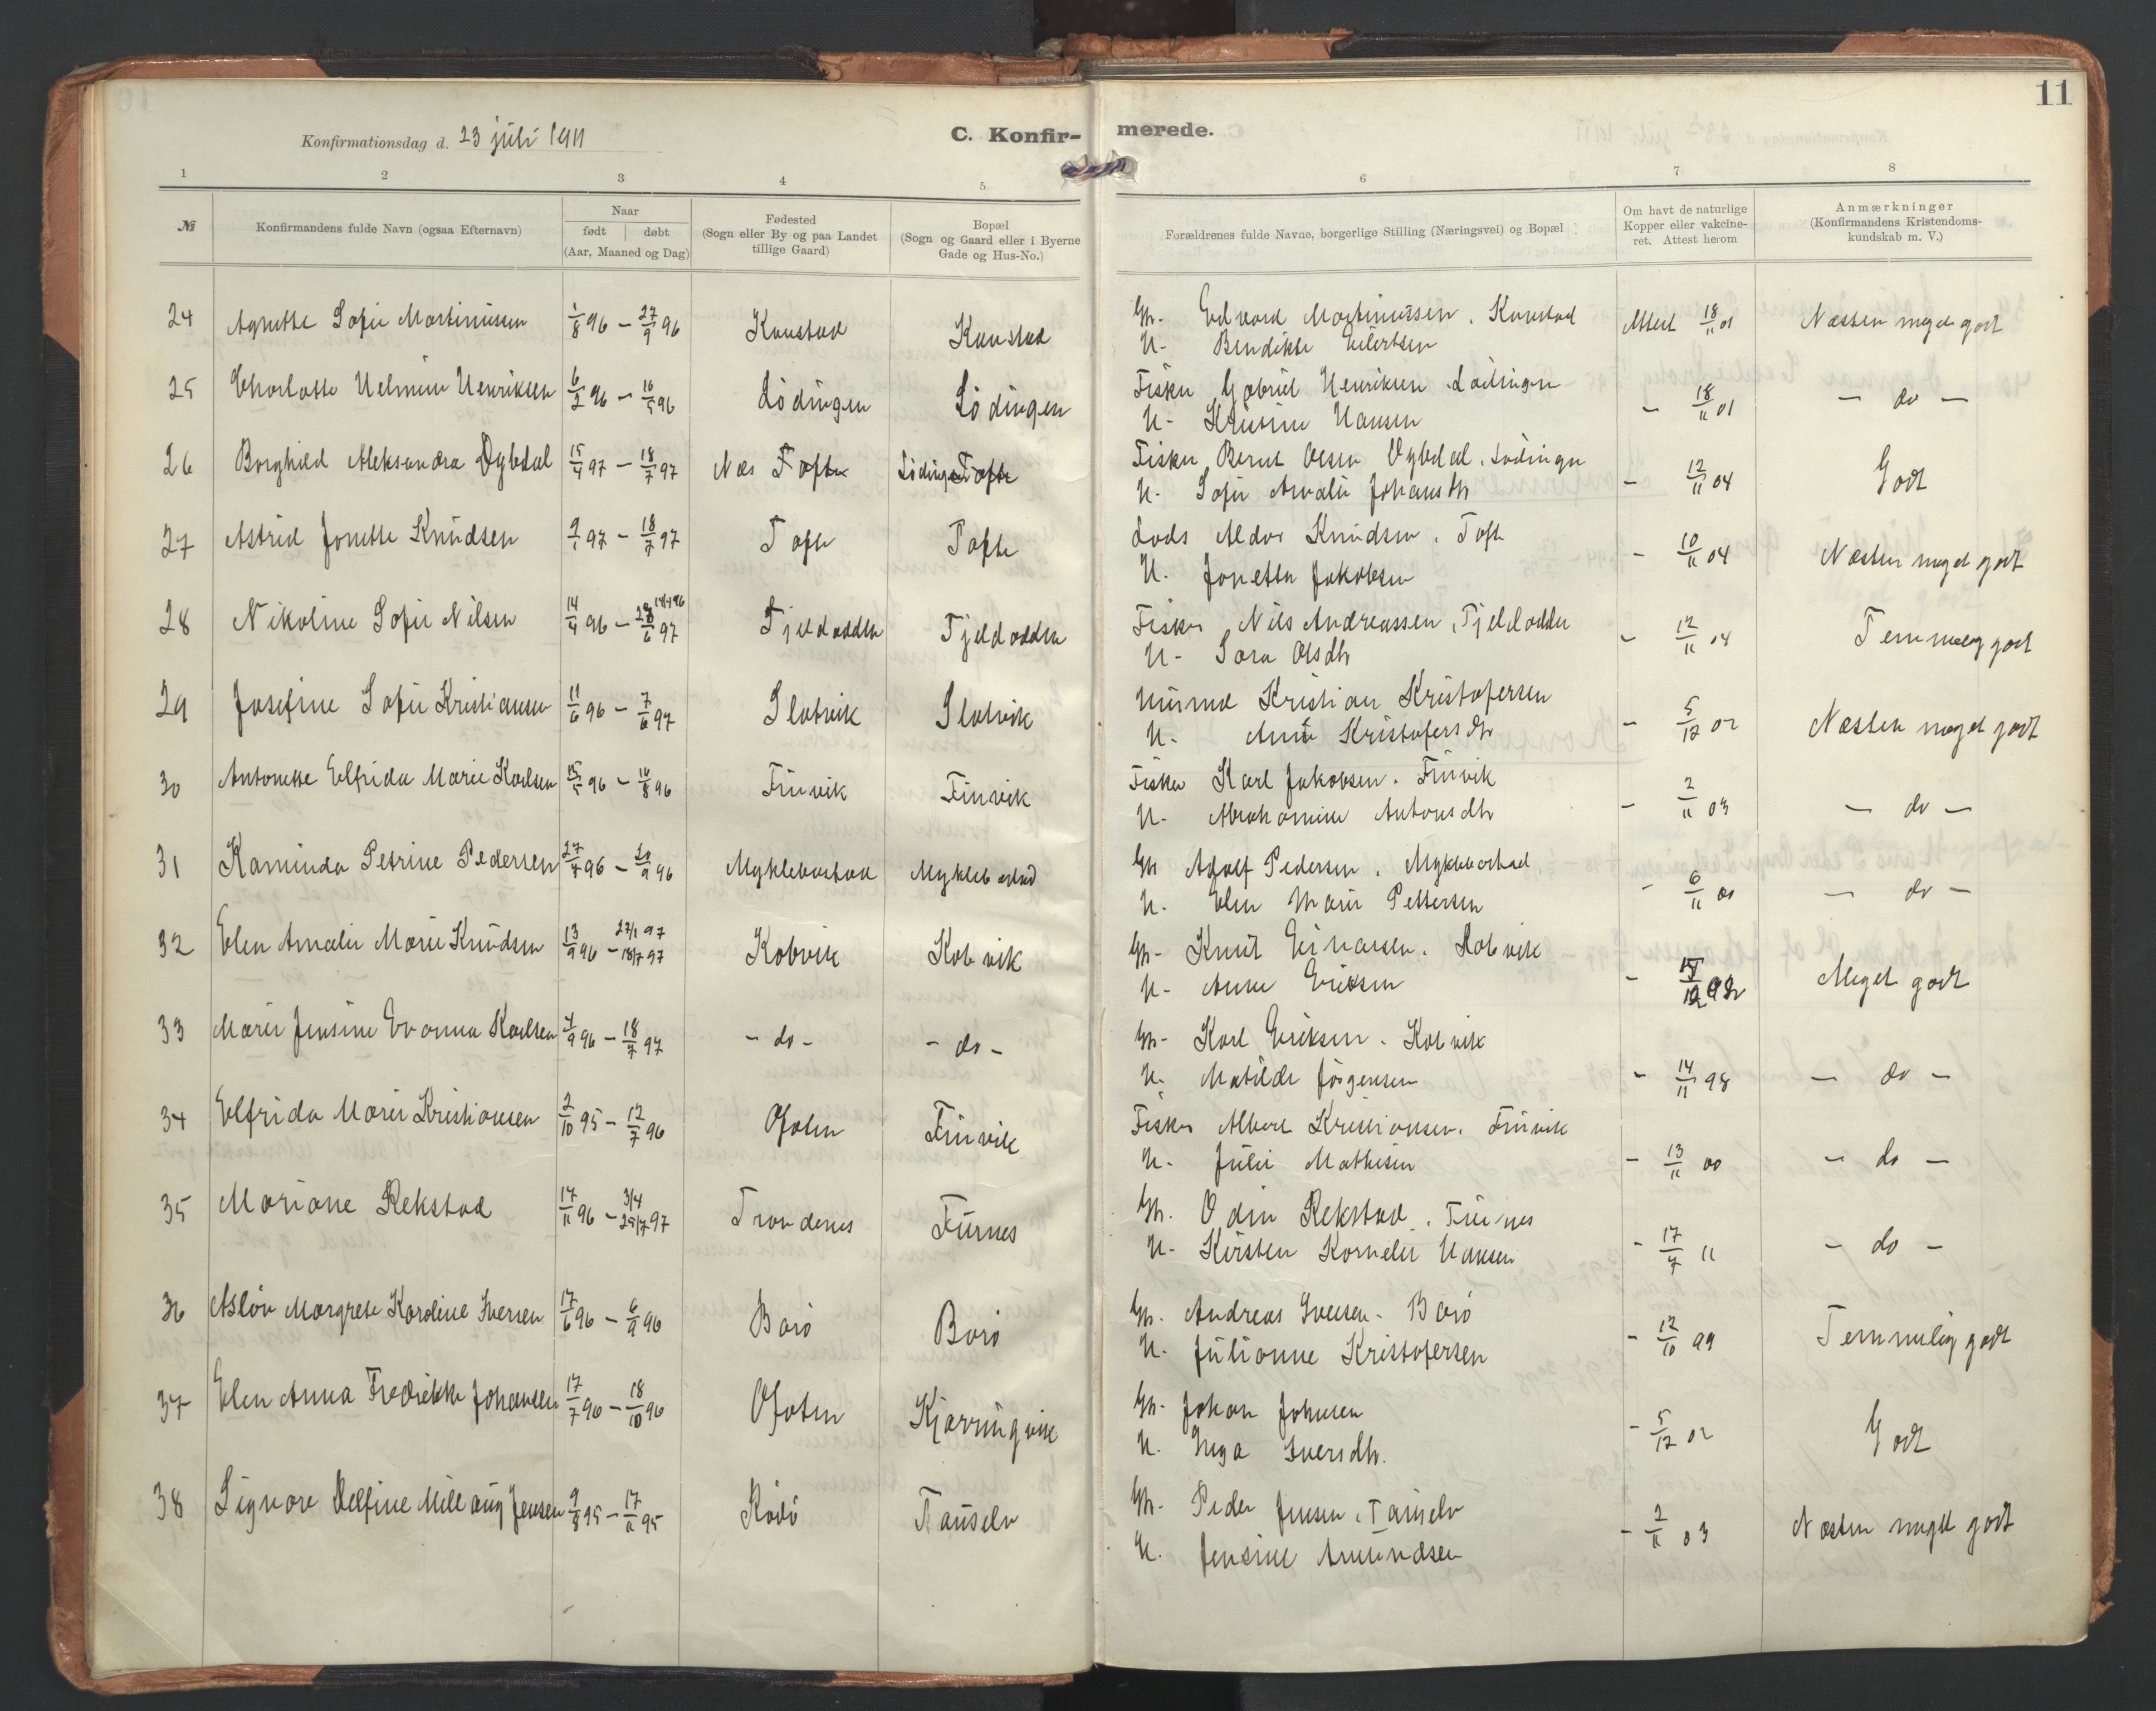 11
Konfirmationsdag d. 23 juli 1911
C. Konfir-
merede.
1 2 3 4 5 6 7 8
№
Konfirmandens fulde Navn (ogsaa Efternavn)
Naar
født | døbt
(Aar, Maaned og Dag)
Fødested
(Sogn eller By og paa Landet
tillige Gaard)
Bopæl
(Sogn og Gaard eller i Byerne
Gade og Hus-No.)
Forældrenes fulde Navne, borgerlige Stilling (Næringsvei) og Bopæl
Om havt de naturlige
Kopper eller vakcine-
ret. Attest herom
Anmærkninger
(Konfirmandens Kristendoms-
kundskab m. V.)
24 Agnethe Sofie Martinussen 1/8 96 – 27/9 96 Kanstad Kanstad Gm. Edvard Martinussen. Kanstad Attest 18/11 01 Næsten meget godt
H. Bendikte Eilertsen
25 Charlotte Helmine Henriksen 6/2 96 – 16/5 96 Lødingen Lødingen Fisker Gabriel Henriksen. Lødingen – 18/11 01 – do –
H. Kristine Hansen
26 Borghild Aleksandra Dybdal 15/4 97 – 18/7 97 Næs Tofte Lødingen Tofte Fisker Bernt Olsen Dybdal. Lødingen – 12/11 04 Godt
H. Sofie Amalie Johansdtr
27 Astrid Jonette Knudsen 9/1 97 – 18/7 97 Tofte Tofte Lods Aldor Knudsen. Tofte – 10/11 04 Næsten meget godt
H. Jonetta Jakobsen
28 Nikoline Sofie Nilsen 14/4 96 – 28/6 97 Fjeldodden Fjeldodden Fisker Nils Andreassen, Fjeldodden – 12/11 04 Temmelig godt
H. Sara Olsdtr
29 Josefine Sofie Kristiansen 11/6 96 – 7/6 97 Slotvik Slotvik Murmd Kristian Kristofersen – 5/12 02 Næsten meget godt
H. Ane Kristofersdtr
30 Antonette Elfrida Marie Karlsen 15/5 96 – 16/8 96 Finvik Finvik Fisker Karl Jakobsen. Finvik – 2/11 03 – do –
H. Abrahamine Antonsdtr
31 Kaminda Petrine Pedersen 27/7 96 – 20/9 96 Myklebostad Myklebostad Gm Adolf Pedersen. Myklebostad – 6/11 00 – do –
H. Elen Marie Pettersen
32 Elen Amalie Marie Knudsen 13/9 96 – 27/1 97 18/7 97 Kobvik Kobvik Gm– Knut Einarsen. Kobvik Meget godt
H– Anne Eriksen
33 Marie Jensine Evanna Karlsen 4/9 96 – 18/7 97 – do – – do – Gm– Karl Eriksen. Kobvik – 14/11 98 – do –
H. Matilde Jørgensen
34 Elfrida Marie Kristiansen 2/10 95 – 12/7 96 Ofoten Finvik Fisker Albert Kristiansen. Finvik – 13/11 00 – do –
H. Julie Mathisen
35 Mariane Rekstad 17/11 96 – 3/4 25/7 97 Trondenes Furnes Gm. Odin Rekstad. Furnes – 17/7 11 – do –
H– Kirsten Kornelie Hansen
36 Asløv Margrete Karoline Iversen 17/6 96 – 6/9 96 Barø Barø Gm. Andreas Iversen. Barø – 12/10 99 Temmelig godt
H. Julianne Kristofersen
37 Elen Anna Fredrikke Johansen 17/7 96 – 18/10 96 Ofoten Kjærringvik Gm– Johan Johnsen – 5/12 02 Godt
H. Inga Iversdtr.
38 Signore Delfine Jensen 9/8 95 – 17/ 95 Rødø Tauselv Gm– Peder Jensen. Tauselv – 2/11 03 Næsten meget godt
H. Jensine Amundsen